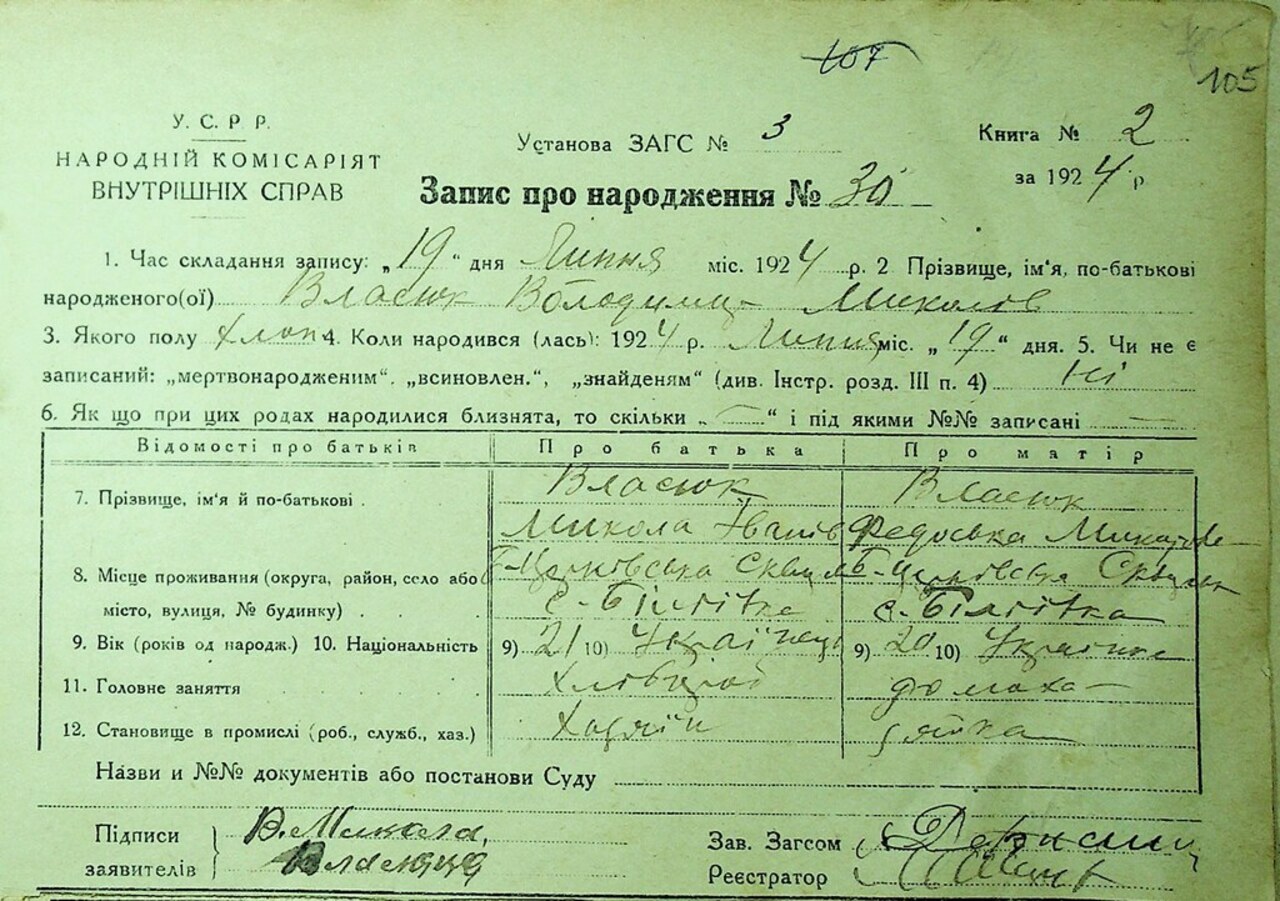 107
105
У. С. Р. Р.
НАРОДНІЙ КОМІСАРІЯТ
ВНУТРІШНІХ СПРАВ
Установа ЗАГС № 3
Книга № 2
за 1924 р
Запис про народження № 30
1. Час складання запису: „19“ дня Липня міс. 1924 р. 2 Прізвище, ім'я, по-батькові
народженого(ої) Власюк Володимир Миколов
3. Якого полу хлоп 4. Коли народився (лась): 1924 р. Липня міс. „19“ дня. 5. Чи не є
записаний: „мертвонародженим“. „всиновлен.“, „знайденям“ (див. Інстр. розд. III п. 4) Ні
6. Як що при цих родах народилися близнята, то скільки „—“ і під якими №№ записані —
Відомості про батьків Про батька Про матір
7. Прізвище, ім'я й по-батькові . Власюк Власюк
Микола Іванів Федоська
8. Місце проживання (округа, район, село або Б-Церковська Сквирськ Б-Церковська Сквирськ
місто, вулиця, № будинку) . . с. Біліївка с. Біліївка
9. Вік (років од народж.) 10. Національність 9) 21 10) Українець 9) 20 10) Українка
11. Головне заняття . . . . Хлібороб домаха-
12. Становище в промислі (роб., служб., хаз.) Хазяїн
Назви и №№ документів або постанови Суду
Підписи
заявителів
В. Микола,
Зав. Загсом
Реєстратор